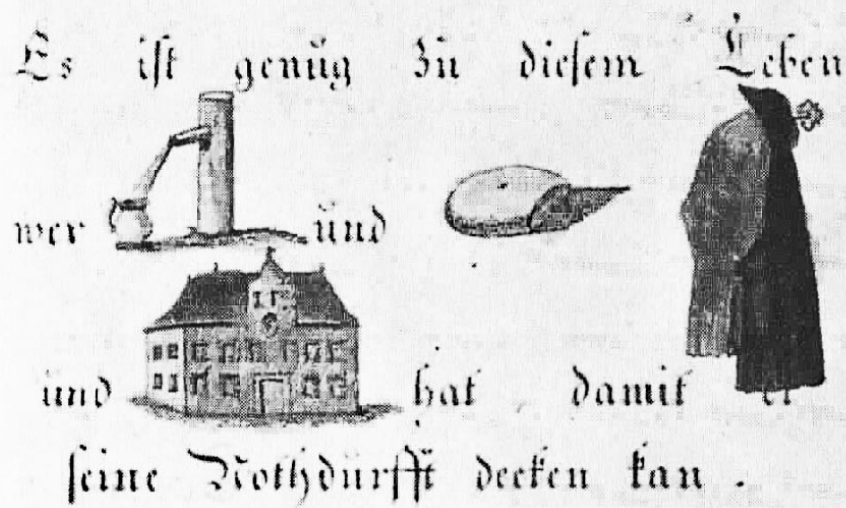 Es ist genüg zü diesem Leben
wer ünd
ünd hat damit er
seine Nothdürfft decken kan .